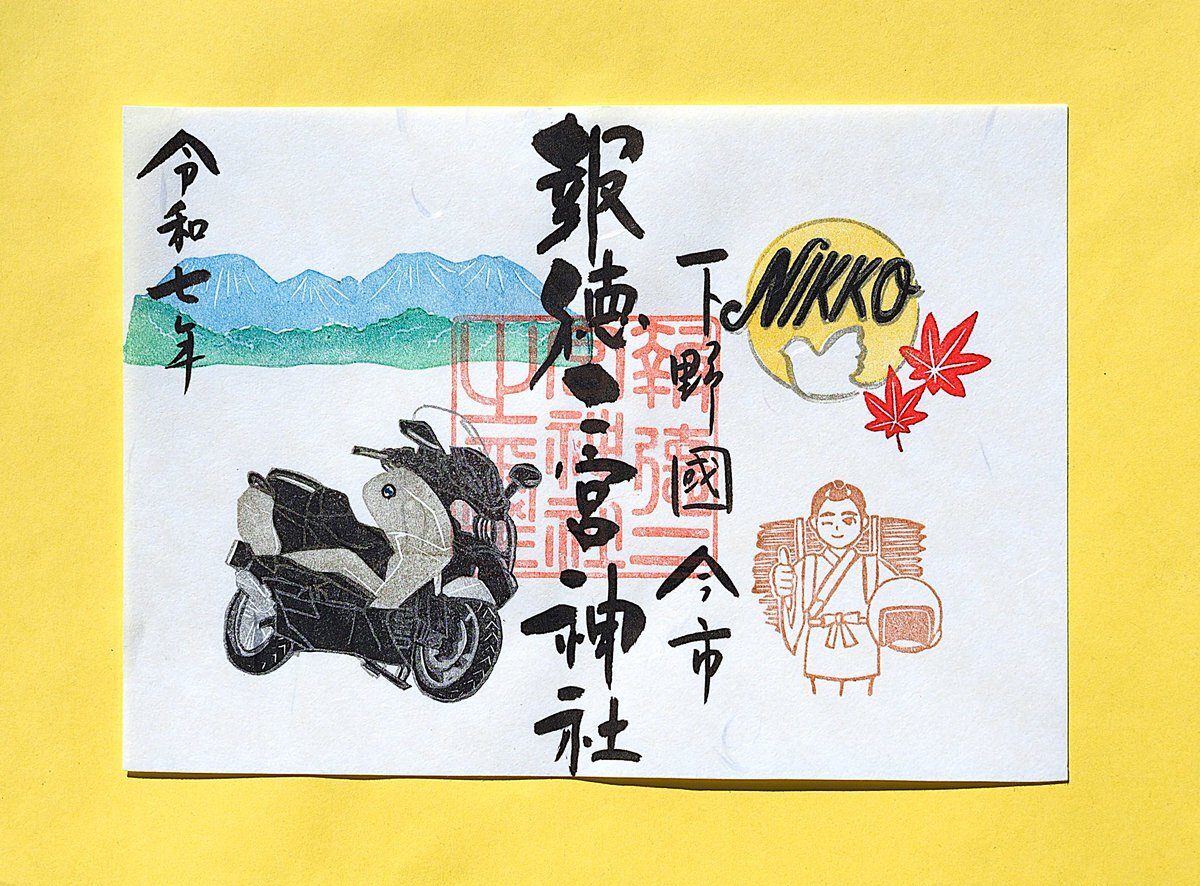 NIKKO
下野國今市
報徳二宮神社
報徳二
宮神社
之璽
令和七年